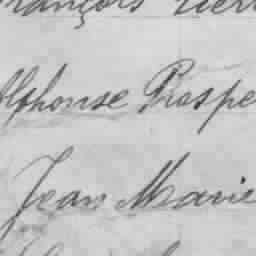 François
Alphonse Prospe
Jean Marie